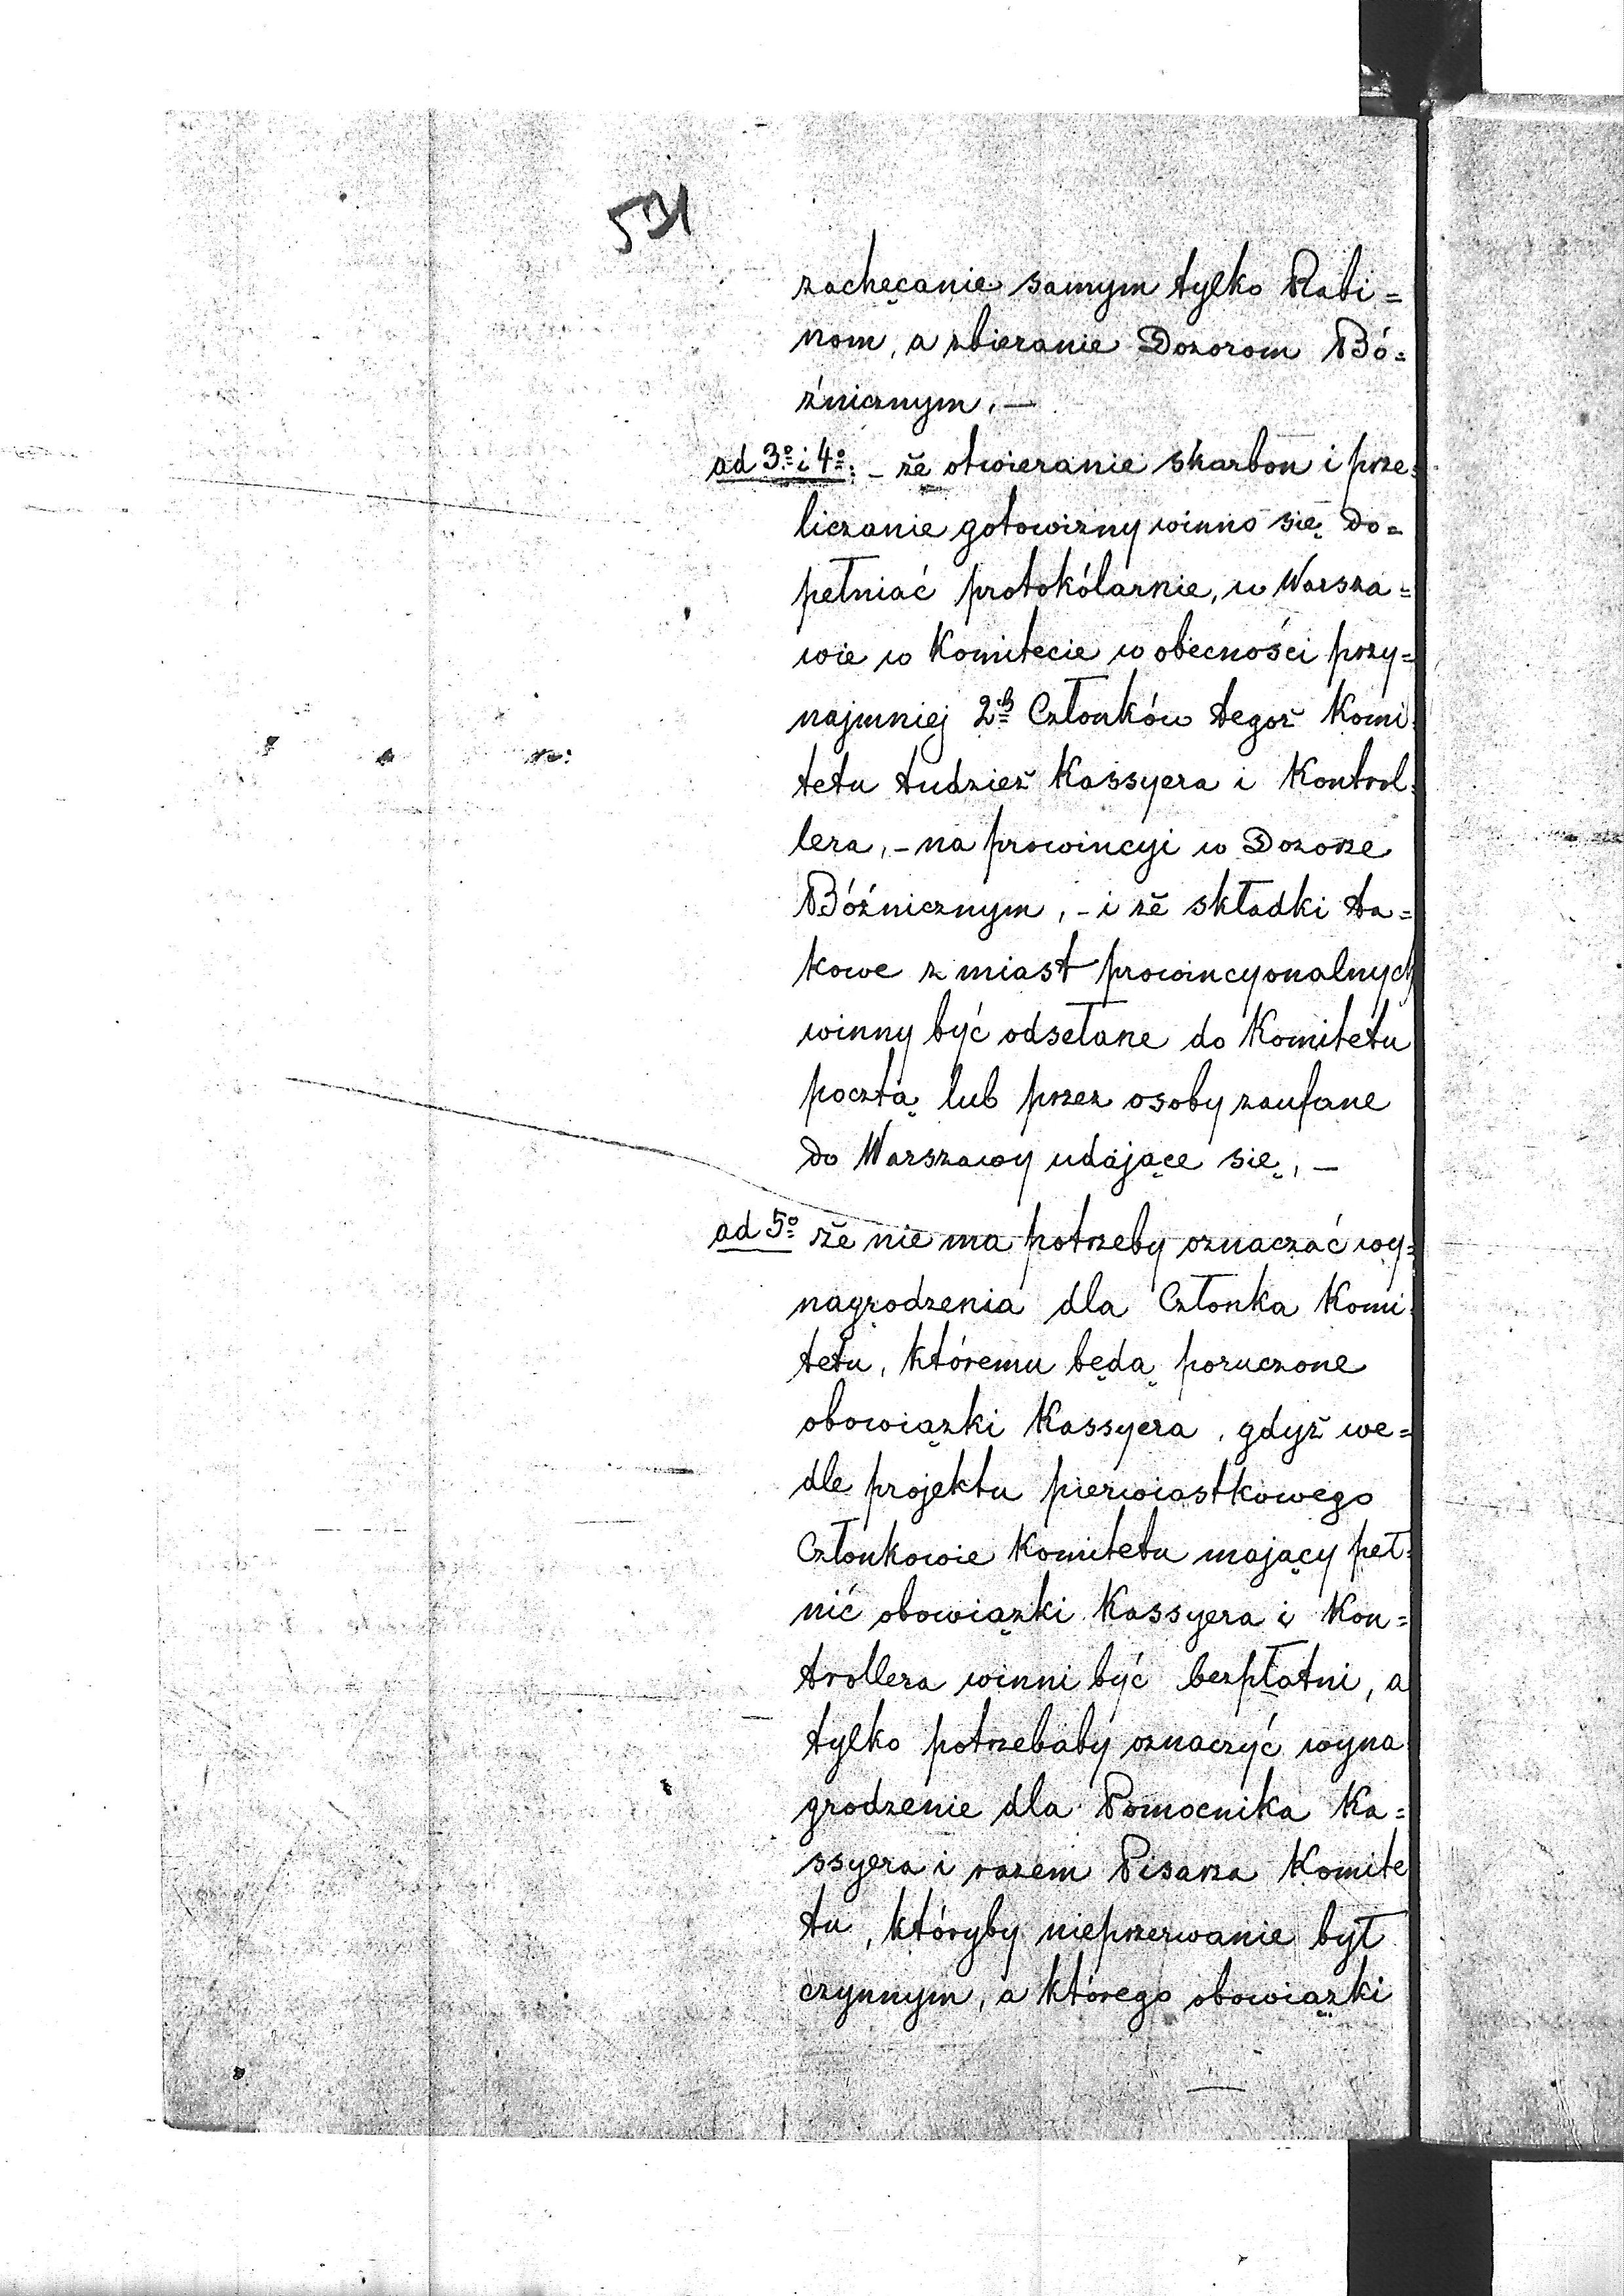 zachęcanie samym tylko Rabi=
nom, a zbieranie Dozorom Bó=
źnicznym, —
ad 3º i 4º: – że otwieranie skarbon i prze=
liczanie gotowizny winno się do=
pełniać protokólarnie, w Warsza=
wie w Komitecie w obecności przy=
najmniej 2ch Członków tegoż Komi=
tetu tudzież Kassyera i Kontrol=
lera, – na prowincyi w Dozorze
Bóźnicznym, – i że składki ta=
kowe z miast prowincyonalnych
winny być odsełane do Komitetu
pocztą lub przez osoby zaufane
do Warszawy udające się, —
ad 5º że nie ma potrzeby oznaczać wy=
nagrodzenia dla Członka Komi=
tetu, któremu będą poruczone
obowiązki Kassyera, gdyż we=
dle projektu pierwiastkowego
Członkowie Komitetu mający peł=
nić obowiązki Kassyera i Kon=
trollera winni być bezpłatni, a
tylko potrzebaby oznaczyć wyna
grodzenie dla Pomocnika Ka=
ssyera i razem Pisarza Komite
tu, któryby nieprzerwanie był
czynnym, a którego obowiązki